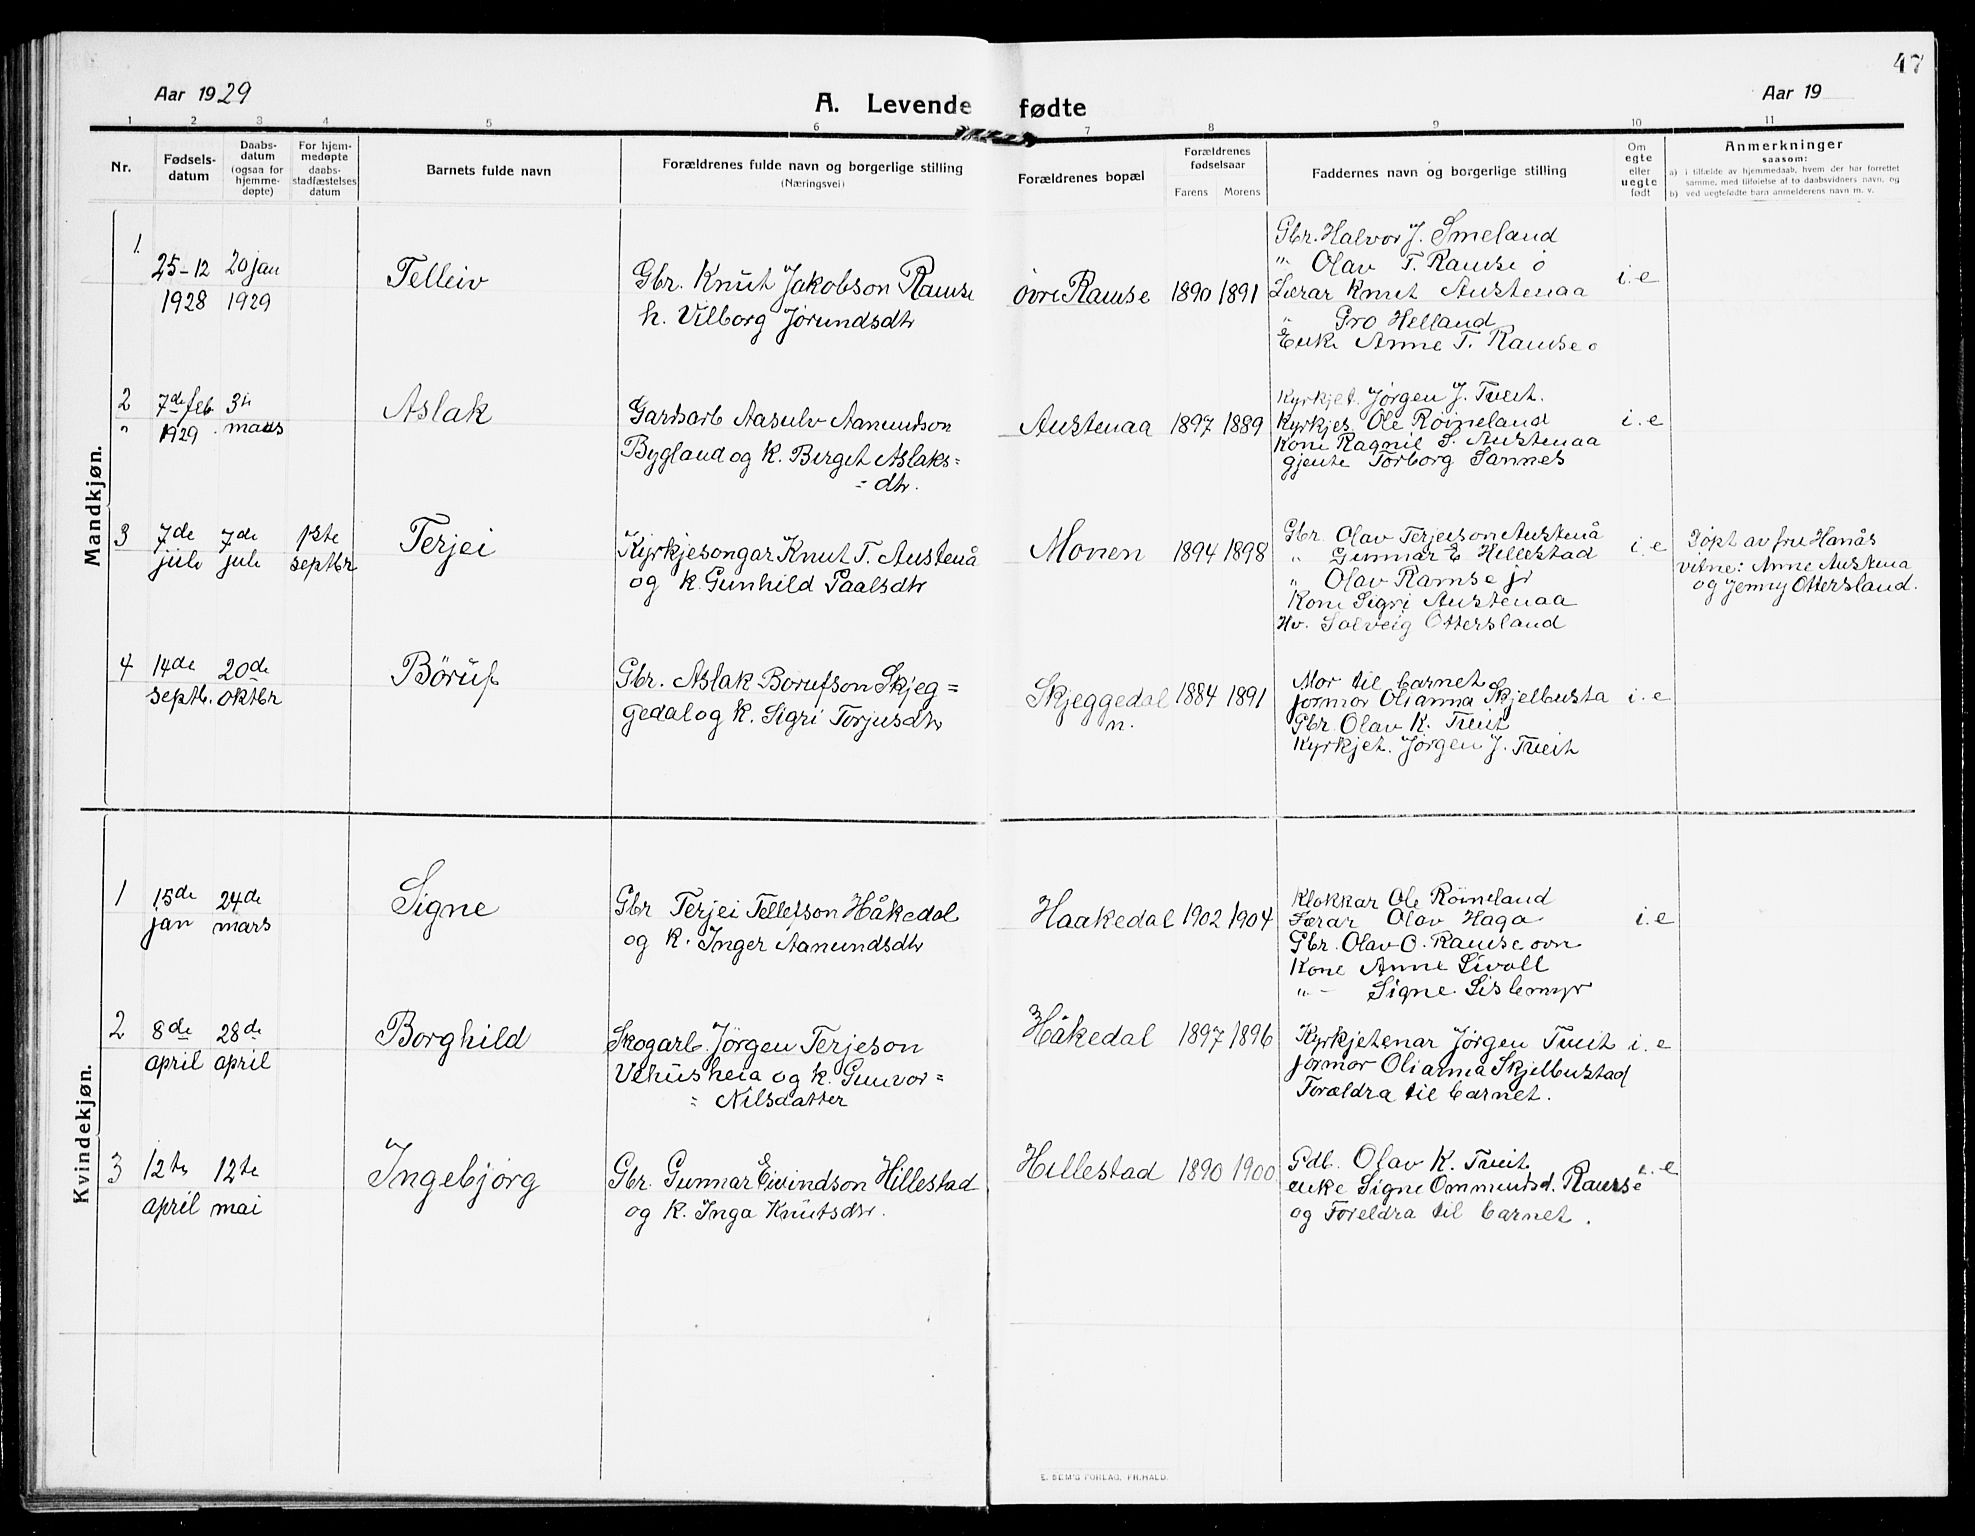 47
Aar 1929
A. Levende fødte
Aar 19
1 2 3 4 5 6 7 8 9 10 11
Nr.
Fødsels-
datum
Daabs-
datum
(ogsaa for
hjemme-
døpte)
For hjem-
medøpte
daabs-
stadfæstelses
datum
Barnets fulde navn
Forældrenes fulde navn og borgerlige stilling
(Næringsvei)
Forældrenes bopæl
Forældrenes
fødselsaar
Farens Morens
Faddernes navn og borgerlige stilling
Om
egte
eller
uegte
født
Anmerkninger
saasom:
a) i tilfælde av hjemmedaab, hvem der har forrettet
samme, med tilføielse af to daabsvidners navn, og
b) ved uegtefødte barn anmelderens navn m. v.
Mandkjøn.
1.
25-12
1928
20 jan
1929
Telleiv
Gbr. Knut Jakobson Ramse
k. Vilborg Jørundsdtr
øvre Ramse
1890 1891
Gbr. Halvor J. Smeland
" Olav T. Ramse ø
Lærar Knut Austenaa
" Gro Helland
Enke Anne T. Ramse ø
i.e
2
"
7de feb
1929
3
mars
Aslak
Gardsarb Aasulv Aamundson
Bygland og k. Berget Aslaks=
= dtr.
Austenaa
1897 1889
Kyrkjet. Jørgen J. Tveit.
Kyrkjes Ole Røineland
Kone Ragnil S. Austenaa
gjente Torborg Sannes
i.e
3
7de
juli
7de
juli
1ste
septbr
Terjei
Kyrkjesongar Knut T. Austenå
og k. Gunhild Paalsdtr
Monen
1894 1898
Gbr. Olav Terjeison Austenå
" Gunnar E Hillestad
" Olav Ramse jr
Kone Sigri Austenaa
Hv. Solveig Ottersland
i.e
Døpt av fru Hanås
vitne: Anne Austena
og Jenny Ottersland.
4
14de
septb.
20de
oktbr
Börüf
Gbr. Aslak Borufson Skjeg=
gedal og k. Sigri Torjusdtr
Skjeggedal
n.
1884 1891
Mor til barnet
jormor Olianna Skjelbusta
Gbr. Olav K. Tveit
Kyrkjet. Jørgen J. Tveit
i.e
Kvindekjøn.
1
15de
jan
24de
mars
Signe
Gbr Terjei Tellefson Håkedal
og k. Inger Aamundsdtr
Haakedal
1902 1904
Klokkar Ole Røineland
Lærar Olav Haga
Gbr. Olav O. Ramse ovn
Kone Anne Livoll
" - Signe Lislemyr
i.e
2
8de
april
28de
april
Borghild
Skogarb. Jørgen Terjeson
Vehusheia og k. Gunvor=
= Nilsdatter
Håkedal
1897 1896
Kyrkjetenar Jørgen Tveit
jormor Olianna Skjelbustad
Forældra til barnet.
i.e
3
12te
april
12te
mai
Ingebjørg
Gbr. Gunnar Eivindson Hillestad
og k. Inga Knutsdtr.
Hillestad
1890 1900
Gdb. Olav K. Tveit
enke Signe Ommundsd. Ramse
og Foreldra til barnet.
i.e
E. SEM'S FORLAG, FR.HALD.